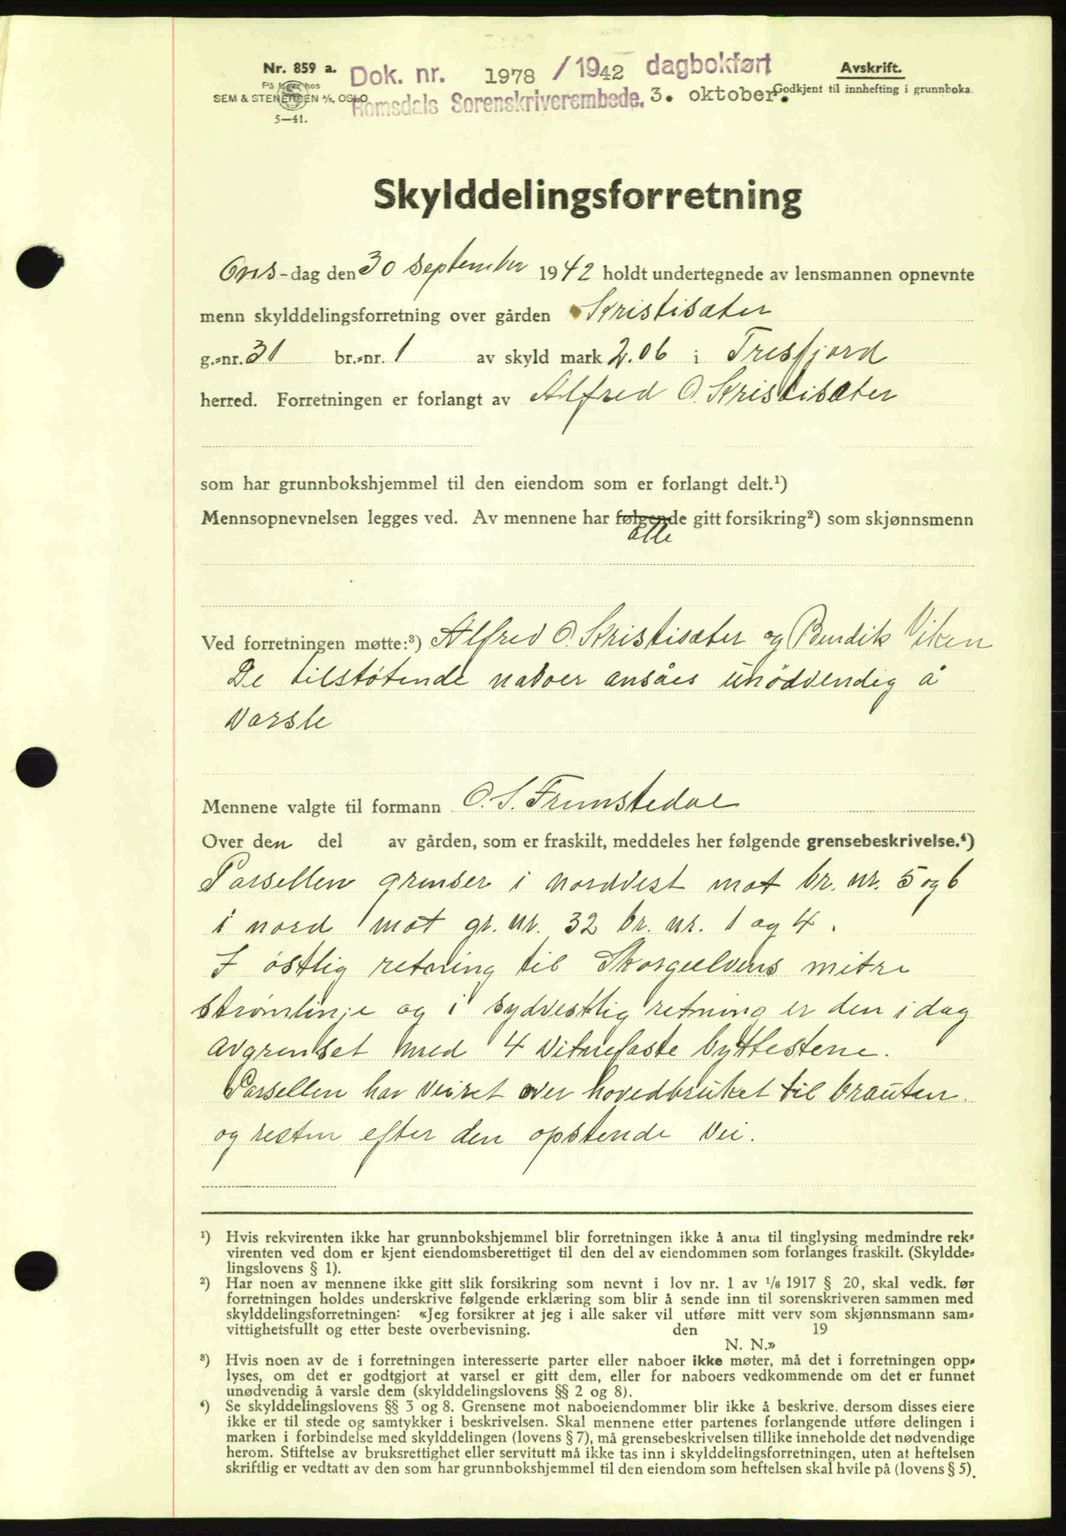 Nr. 859 a.
På lager hos
SEM & STENERSEN A/S, OSLO
5—41.
Dok. nr. 1978 /1942 dagbokført
Romsdals Sorenskriverembede. 3. oktober.
Avskrift.
Godkjent til innhefting i grunnboka.
Skylddelingsforretning
Ons-dag den 30 September 1942 holdt undertegnede av lensmannen opnevnte
menn skylddelingsforretning over gården Kristisæter
g.=nr. 31 br.=nr. 1 av skyld mark 2.06 i Tresfjord
herred. Forretningen er forlangt av Alfred O. Kristisæter
som har grunnbokshjemmel til den eiendom som er forlangt delt.¹)
Mennsopnevnelsen legges ved. Av mennene har følgende gitt forsikring²) som skjønnsmenn
alle
Ved forretningen møtte:³) Alfred O. Kristisæter og Bendik Viken
De tilstøtende naboer ansåes unødvendig å
varsle
Mennene valgte til formann O. S. Frunstedal
Over den del av gården, som er fraskilt, meddeles her følgende grensebeskrivelse.⁴)
Parsellen grenser i nordvest mot br. nr. 5 og 6
i nord mot gr. nr. 32 br. nr. 1 og 4.
I østlig retning til Skorgeelvens mitre
strømlinje og i sydvestlig retning er den i dag
avgrenset med 4 vitnefaste byttestene.
Parsellen har veiret over hovedbruket til brauten.
og resten efter den opstende vei.
¹) Hvis rekvirenten ikke har grunnbokshjemmel blir forretningen ikke å anta til tinglysing medmindre rek=
virenten ved dom er kjent eiendomsberettiget til den del av eiendommen som forlanges fraskilt. (Skyldde=
lingslovens § 1).
²) Har noen av mennene ikke gitt slik forsikring som nevnt i lov nr. 1 av ¹/₆ 1917 § 20, skal vedk. før
forretningen holdes underskrive følgende erklæring som blir å sende inn til sorenskriveren sammen med
skylddelingsforretningen: «Jeg forsikrer at jeg i alle saker vil utføre mitt verv som skjønnsmann sam=
vittighetsfullt og etter beste overbevisning. den 19
N. N.»
³) Hvis noen av de i forretningen interesserte parter eller naboer ikke møter, må det i forretningen opp=
lyses, om det er godtgjort at varsel er gitt dem, eller for naboers vedkommende om det er funnet
unødvendig å varsle dem (skylddelingslovens §§ 2 og 8).
⁴) Se skylddelingslovens §§ 3 og 8. Grensene mot naboeiendommer blir ikke å beskrive, dersom disses eiere
ikke er til stede og samtykker i beskrivelsen. Skal mennene etter partenes forlangende utføre delingen i
marken i forbindelse med skylddelingen (lovens § 7), må grensebeskrivelsen tillike inneholde det nødvendige
herom. Stiftelse av bruksrettighet eller servitutt må ikke tas inn i skylddelingsforretningen, uten at heftelsen
skriftlig er vedtatt av den som har grunnbokshjemmel til den eiendom som heftelsen skal hvile på (lovens § 5).